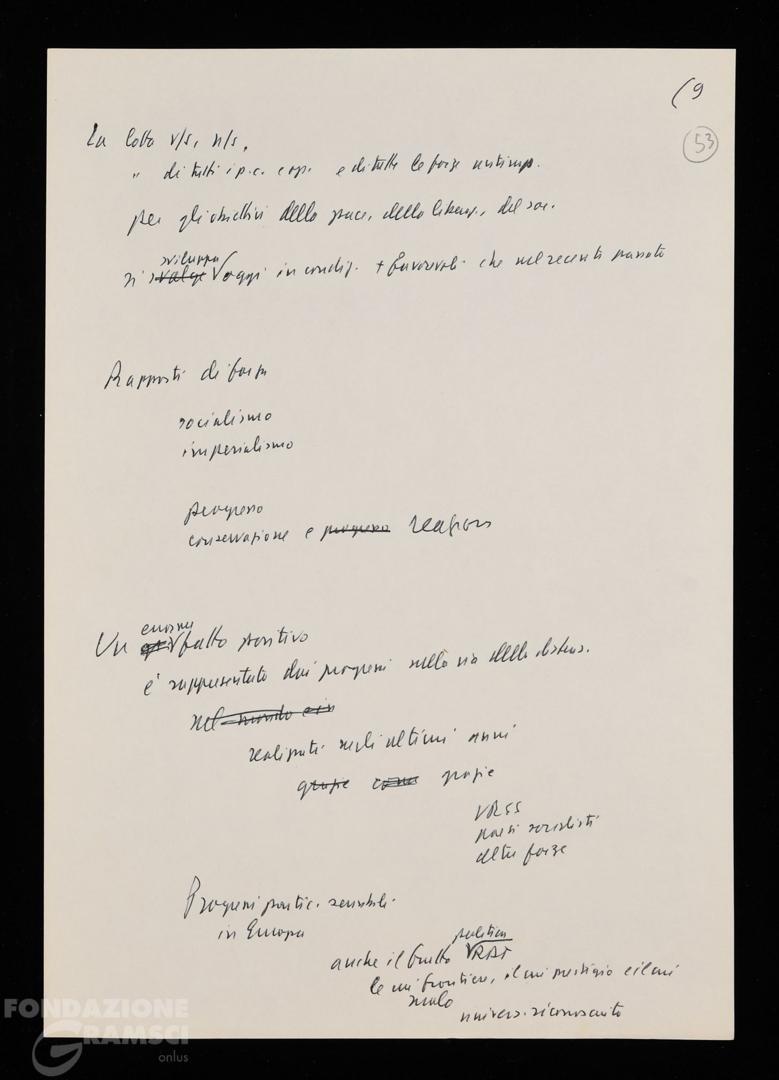 (9
53
La lotta v/s, n/s,
" di tutti i p.c. e op. e di tutte le forze antimp.
per gli obiettivi della pace, della libeaz., del soc.
sviluppa
si svolge oggi in condiz. + favorevoli che nel recente passato
Rapporti di forza
socialismo
imperialismo
progresso
conservazione e progresso reazione
enorme
Un fatto positivo
è rappresentato dai progressi sulla via della distens.
nel mondo e in
realizzati negli ultimi anni
grazie come grazie
URSS
paesi socialisti
altre forze
Progressi partic. sensibili
in Europa
politica
anche il frutto RDT
le cui frontiere, il cui prestigio e il cui
ruolo
univers. riconosciuto
FONDAZIONE
GRAMSCI
onlus